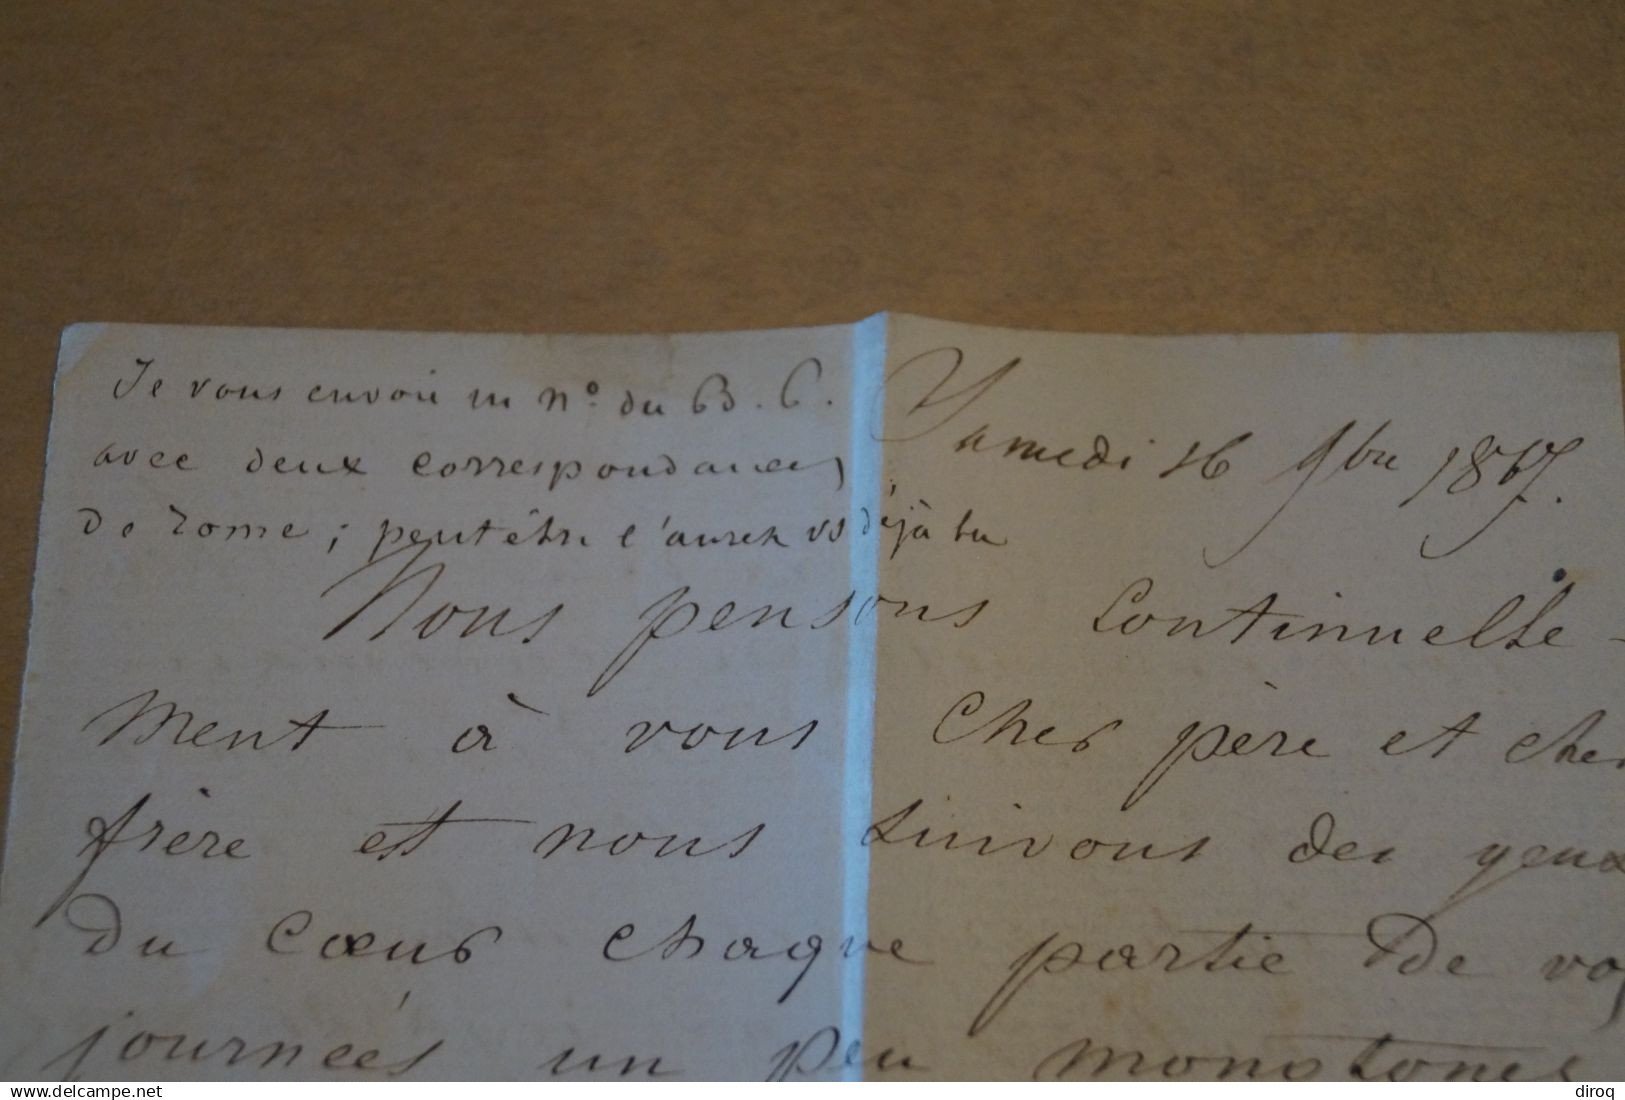 Je vous envoie un n° du B. P.
avec deux correspondances
de rome ; peut être l'aurez vs déjà lu
Samedi 16 9bre 1867.
Nous pensons continuelle-
ment à vous cher père et cher
frère et nous suivons des yeux
du cœur chaque partie de vos
journées un peu monotones
delcampe.net
diroq